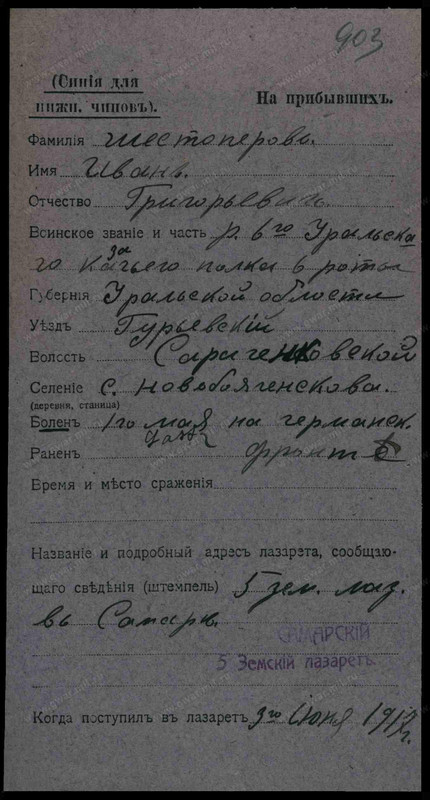 903
(Синія для
нижн. чиновъ).
На прибывшихъ.
Фамилія Шестоперовъ.
Имя Иванъ.
Отчество Григорьевичъ.
Воинское званіе и часть р. 6го Уральска
го качьего полка 6 роты
за
Губернія Уральской области
Уѣздъ Гурьевскій
Волость
Селеніе с.
(деревня, станица)
Болен 1го мая на германск.
Ранен фронтѣ
Время и мѣсто сраженія
Названіе и подробный адресъ лазарета, сообщаю-
щаго свѣдѣнія (штемпель) 5 зем. лаз.
въ Самарѣ.
САМАРСКІЙ
5 Земскій лазаретъ
Когда поступил въ лазаретъ 3го Июня 1917г.